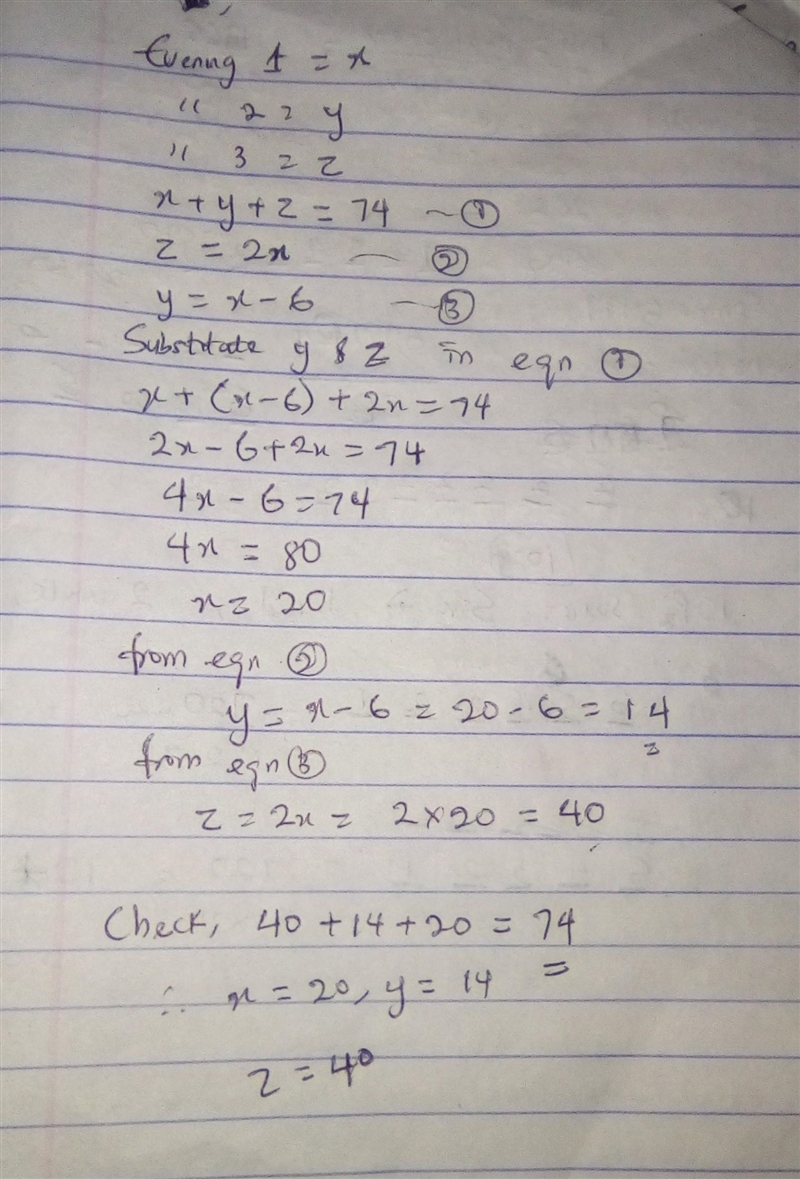 Evening 1 = x
" 2 = y
" 3 = z
x + y + z = 74 — ①
z = 2x — ②
y = x - 6 — ③
Substitate y & z in eqn ①
x + (x-6) + 2x = 74
2x - 6 + 2x = 74
4x - 6 = 74
4x = 80
x = 20
from eqn ②
y = x - 6 = 20 - 6 = 14
from eqn ③
z = 2x = 2 × 20 = 40
Check, 40 + 14 + 20 = 74
∴ x = 20, y = 14
z = 40